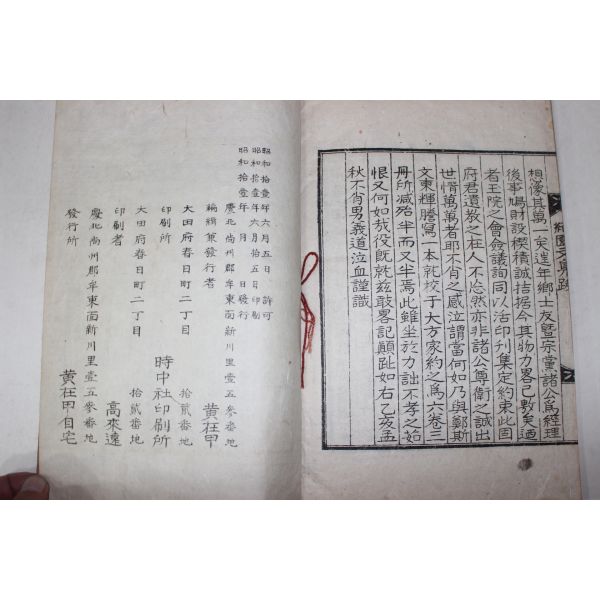 想像其萬一矣逞年鄉士友暨宗黨諸公爲經理
後事鳩財設稧積誠拮据今其物力畧已敷矣迺
者玉院之會僉議詢同以活印刊集定約束此固
府君遺教之在人不忘然亦非諸公尊衛之誠出
世情萬萬者耶不肖之感泣謂當何如乃與鄭斯
文東輝謄寫一本就校于大方家約之爲六卷三
冊所减殆半而又半焉此雖坐於力詘不孝之始
恨又何如哉役旣就玆敢畧記顚趾如右乙亥孟
秋不肖男義道泣血謹識
昭和拾壹年六月五日許可
昭和拾壹年六月拾五日印刷
昭和拾壹年 月 日發行
慶北尚州郡牟東面新川里壹五參番地
編緝兼發行者 黃在甲
大田府春日町二丁目 拾貳番地
印刷所 時中社印刷所
大田府春日町二丁目 拾貳番地
印刷者 高來遠
慶北尚州郡牟東面新川里壹五參番地
發行所 黃在甲自宅